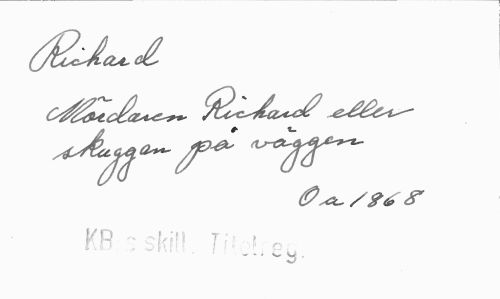 Richard
Mördaren Richard eller
skuggan på väggen
Oa 1868
KB:s skill. Titelreg.